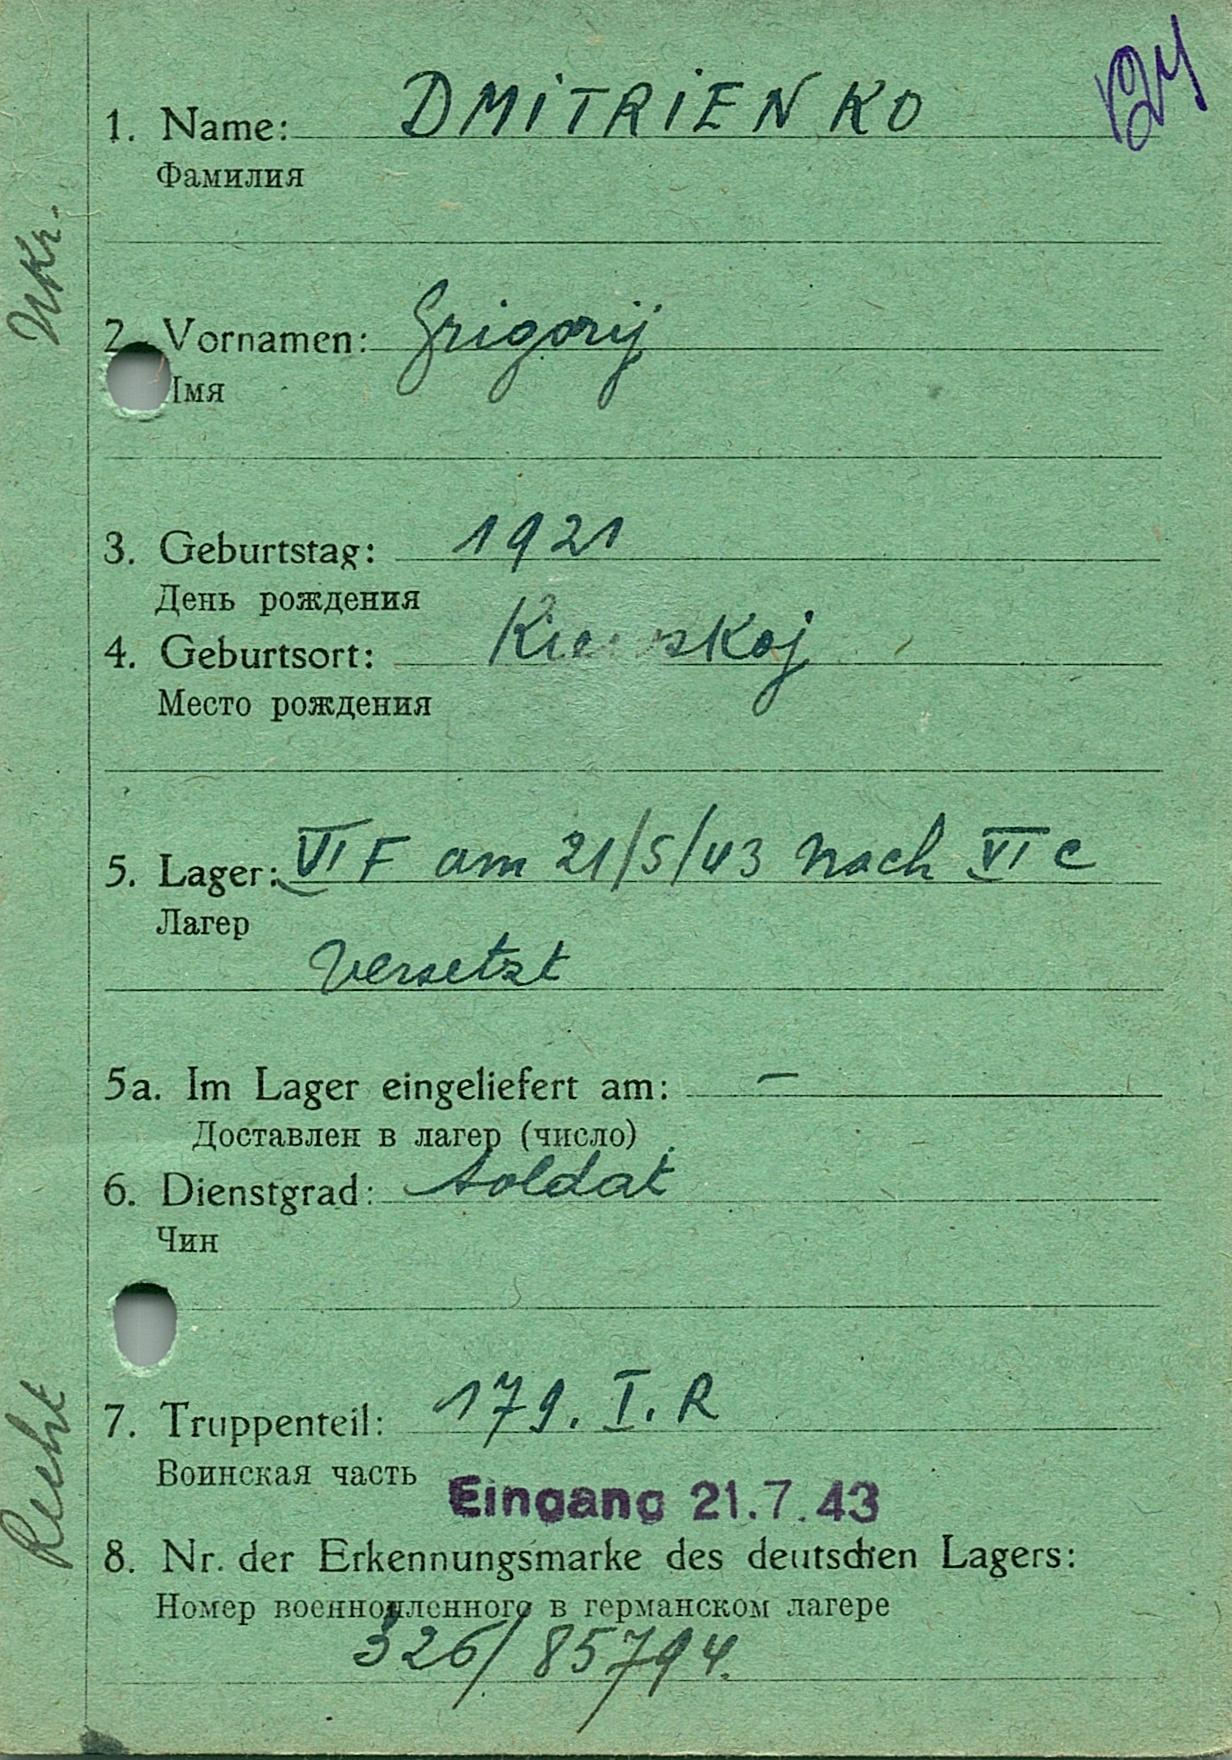 1. Name: DMITRIENKO
Фамилия
Ukr.
2. Vornamen: Grigorij
Имя
3. Geburtstag: 1921
День рождения
4. Geburtsort:
Место рождения
5. Lager: VI F am 21/5/43 nach VI C
Лагер
versetzt
5a. Im Lager eingeliefert am: –
Доставлен в лагер (число)
6. Dienstgrad: Soldat
Чин
7. Truppenteil: 179. I. R
Воинская часть
Eingang 21.7.43
8. Nr. der Erkennungsmarke des deutschen Lagers:
Номер военнопленного в германском лагере
326/85794.